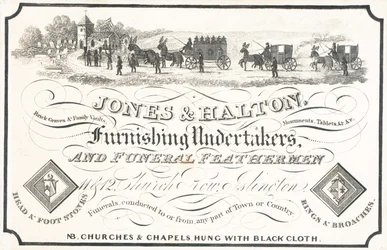 JONES & HALTON,
Brick Graves & Family Vaults,
Monuments, Tablets, &c. &c.
Furnishing Undertakers,
AND FUNERAL FEATHERMEN
Church Row, Islington
HEAD & FOOT STONES
RINGS & BROACHES.
Funerals, conducted to or from, any part of Town or Country
NB. CHURCHES & CHAPELS, HUNG WITH BLACK CLOTH